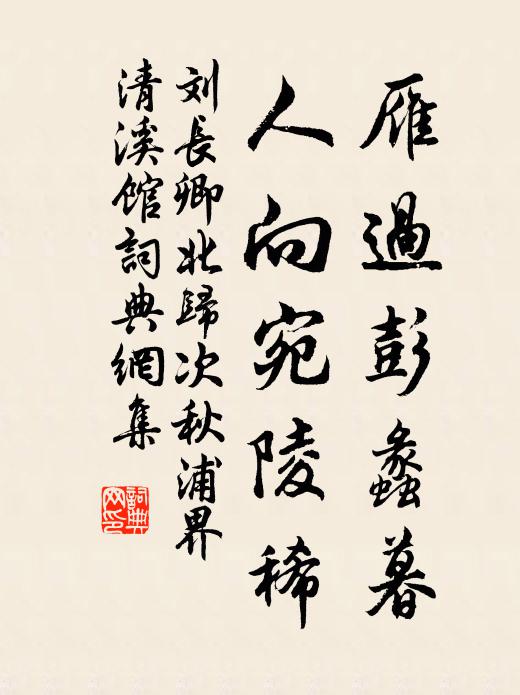 雁過彭蠡暮
人向宛陵稀
刘長卿北歸次秋浦界
清溪館詞典網集
詞典
网印